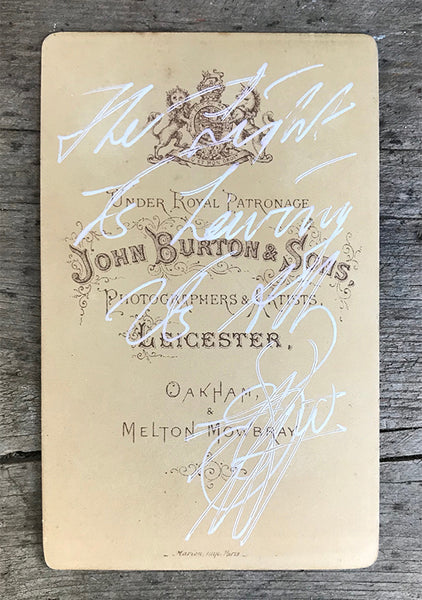 The Light
Is Leaving
Us All
UNDER ROYAL PATRONAGE
JOHN BURTON & SONS,
PHOTOGRAPHERS & ARTISTS,
LEICESTER,
OAKHAM,
&
MELTON MOWBRAY
Marion, Imp. Paris